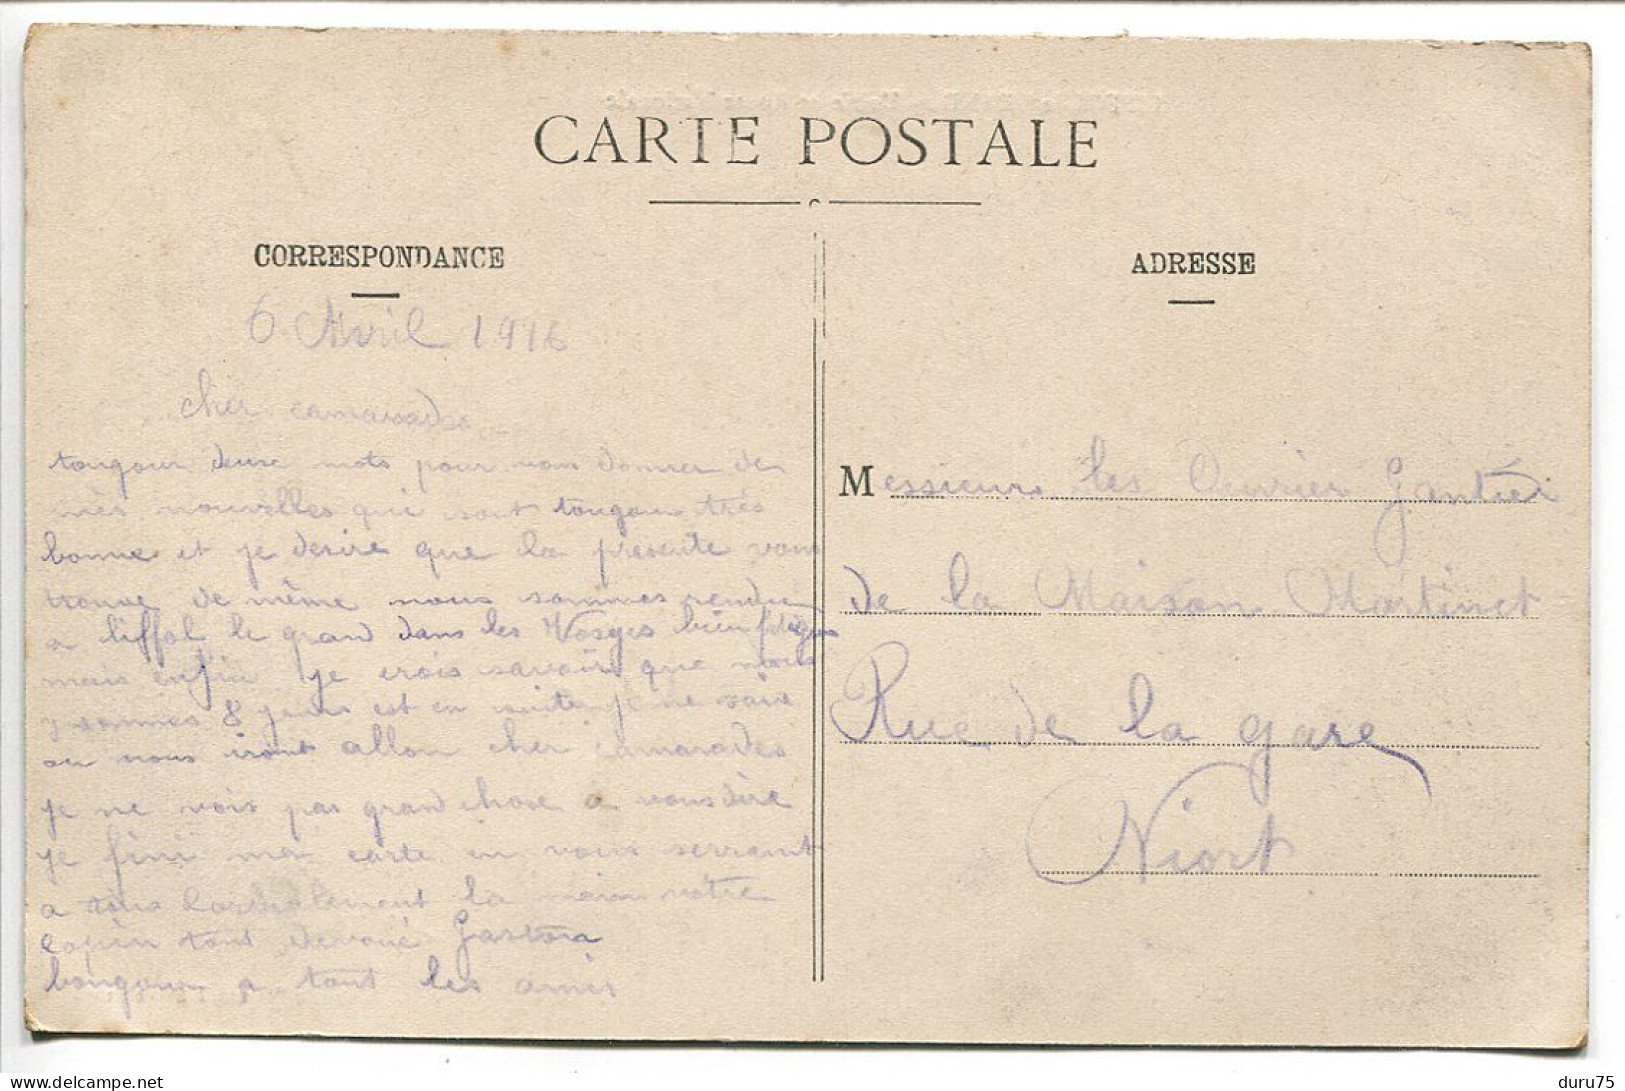 CARTE POSTALE
CORRESPONDANCE
6 Avril 1916
cher camarades
tougour deux mots pour vous donner de
mes nouvelles qui sont tougour très
bonne et je desire que la presente vous
trouve de même nous sommes rendue
a liffol le grand dans les Vosges bien
mais enfin je crois savoir que nous
y sommes 8 jours est en suite je ne sais
ou nous iront allon cher camarades
je ne vois pas grand chose a vous dire
je fini ma carte en vous serrant
a tous la main votre
copin tout devoué Gaston
bougour a tout les amis
ADRESSE
Messieurs les Ouvrier Gantier
de la Maison Martinet
Rue de la gare
Niort
duru75